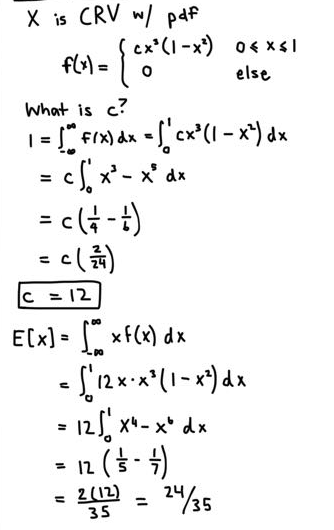 X is CRV w/ pdf
f(x) = { cx³(1-x²) 0 ≤ x ≤ 1
0 else
What is c?
1 = ∫_{-∞}^{∞} f(x) dx = ∫₀¹ cx³(1 - x²) dx
= c∫₀¹ x³ - x⁵ dx
= c(1/4 - 1/6)
= c(2/24)
c = 12
E[x] = ∫_{-∞}^{∞} x f(x) dx
= ∫₀¹ 12x·x³(1-x²) dx
= 12∫₀¹ x⁴ - x⁶ dx
= 12(1/5 - 1/7)
= 2(12)/35 = 24/35